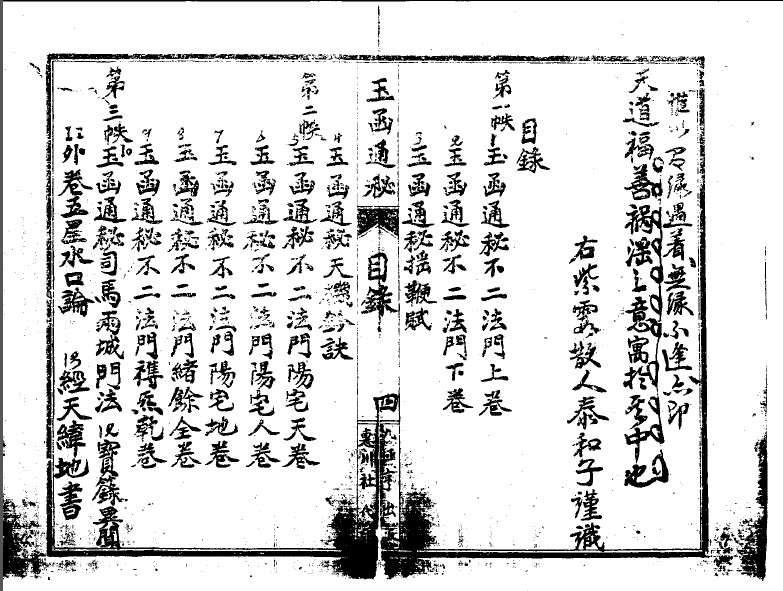 惟以有緣遇着無緣不逢亦即
天道福善禍淫之意寓於其中也
右紫霞散人泰和子謹識
目錄
第一帙 1 玉函通秘不二法門上卷
2 玉函通秘不二法門下卷
3 玉函通秘搖鞭賦
玉函通秘 目錄 四
4 玉函通秘天機鈐訣
第二帙 5 玉函通秘不二法門陽宅天卷
6 玉函通秘不二法門陽宅人卷
7 玉函通秘不二法門陽宅地卷
8 玉函通秘不二法門緒餘全卷
9 玉函通秘不二法門 卷
第三帙 10 玉函通秘司馬雨城門法 12 寶籙異聞
11 外卷五星水口論 13 經天緯地書